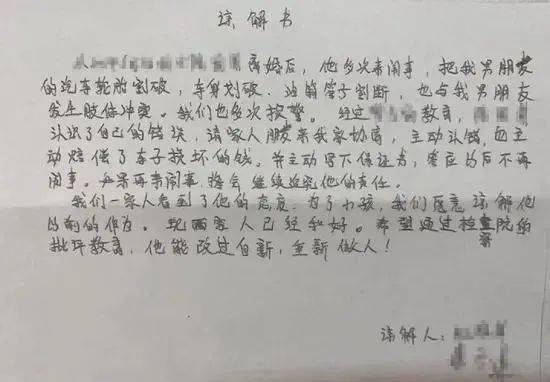 谅解书
从 离婚后，他多次来闹事，把我男朋友
的汽车轮胎割破，车身划破、油箱管子割断，也与我男朋友
发生肢体冲突。我们也多次报警。经过 教育，
认识了自己的错误，请家人朋友来我家协商，主动认错，回主
动赔偿了车子损坏的钱。并主动写下保证书，答应以后不再
闹事。如果再来闹事将会继续追究他的责任。
我们一家人看到了他的态度，为了小孩，我们愿意谅解他
以前的作为。现两家人已经和好。希望通过检察院的
批评教育，他能改过自新，重新做人！
谅解人：